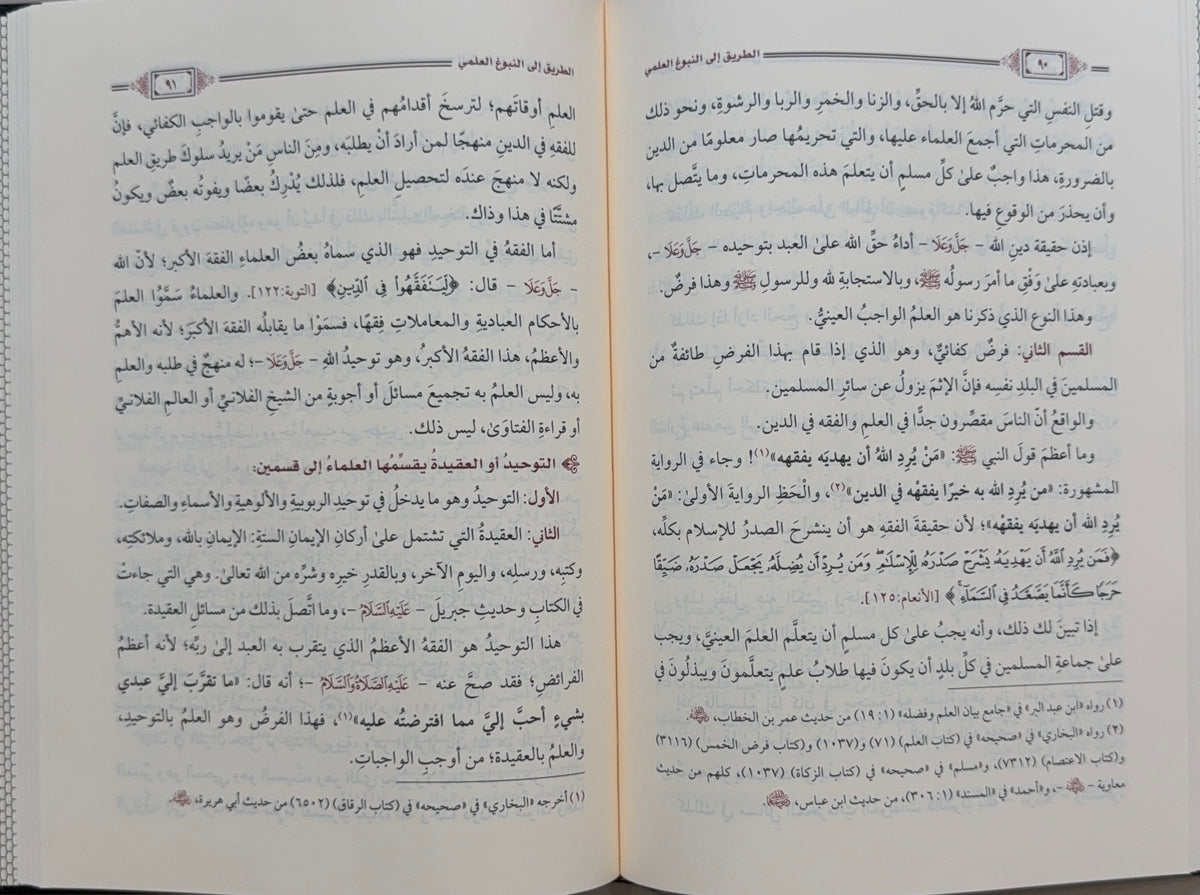 الطريق إلى النبوغ العلمي
٩٠
وقتلِ النفسِ التي حرَّم اللهُ إلا بالحقِّ، والزنا والخمرِ والربا والرشوةِ، ونحو ذلك
من المحرماتِ التي أجمعَ العلماء عليها، والتي تحريمُها صار معلومًا من الدين
بالضرورةِ، هذا واجبٌ علىٰ كلِّ مسلمٍ أن يتعلمَ هذه المحرماتِ، وما يتَّصل بها،
وأن يحذرَ من الوقوعِ فيها.
إذن حقيقة دينِ الله – جَلَّ وَعَلَا – أداءُ حقِّ الله علىٰ العبد بتوحيده – جَلَّ وَعَلَا –،
وبعبادتهِ علىٰ وَفْقِ ما أمرَ رسولُه ﷺ، وبالاستجابةِ لله وللرسولِ ﷺ وهذا فرضٌ.
وهذا النوع الذي ذكرنا هو العلمُ الواجبُ العينيُّ.
القسم الثاني: فرضٌ كفائيٌّ، وهو الذي إذا قام بهذا الفرضِ طائفةٌ من
المسلمينَ في البلدِ نفسِه فإنَّ الإثمَ يزولُ عن سائرِ المسلمين.
والواقعُ أنّ الناسَ مقصِّرون جدًّا في العلمِ والفقه في الدين.
وما أعظمَ قولَ النبي ﷺ: «مَنْ يُرِدِ اللهُ أن يهديَه يفقهه»(١)! وجاء في الرواية
المشهورة: «من يُرِدِ الله به خيرًا يفقهْه في الدين»(٢)، والْحَظِ الروايةَ الأولىٰ: «مَنْ
يُرِدِ الله أن يهديَه يفقهْه»؛ لأن حقيقةَ الفقهِ هو أن ينشرحَ الصدرُ للإسلام بكلِّه،
﴿فَمَن يُرِدِ ٱللَّهُ أَن يَهْدِيَهُۥ يَشْرَحْ صَدْرَهُۥ لِلْإِسْلَٰمِ ۖ وَمَن يُرِدْ أَن يُضِلَّهُۥ يَجْعَلْ صَدْرَهُۥ ضَيِّقًا
حَرَجًا كَأَنَّمَا يَصَّعَّدُ فِي ٱلسَّمَآءِ﴾ [الأنعام:١٢٥].
إذا تبينَ لك ذلك، وأنه يجبُ علىٰ كل مسلمٍ أن يتعلَّم العلمَ العينيَّ، ويجب
علىٰ جماعةِ المسلمين في كلِّ بلدٍ أن يكونَ فيها طلابُ علمٍ يتعلَّمونَ ويبذلُونَ في
(١) رواه «ابن عبد البر» في «جامع بيان العلم وفضله» (١: ١٩) من حديث عمر بن الخطاب، رضي الله عنه.
(٢) رواه «البخاري» في «صحيحه» في (كتاب العلم) (٧١) و(١٠٣٧) و(كتاب فرض الخمس) (٣١١٦)
و(كتاب الاعتصام) (٧٣١٢)، و«مسلم» في «صحيحه» في (كتاب الزكاة) (١٠٣٧)، كلهم من حديث
معاوية – رضي الله عنه –، و«أحمد» في «المسند» (١: ٣٠٦)، من حديث ابن عباس، رضي الله عنهما.
الطريق إلى النبوغ العلمي
٩١
العلمِ أوقاتَهم؛ لترسخَ أقدامُهم في العلم حتىٰ يقوموا بالواجبِ الكفائي، فإنَّ
للفقهِ في الدينِ منهجًا لمن أرادَ أنْ يطلبَه، ومِنَ الناسِ مَنْ يريدُ سلوكَ طريقِ العلم
ولكنه لا منهجَ عندَه لتحصيلِ العلمِ، فلذلك يُدْرِكُ بعضًا ويفوتُه بعضٌ ويكونُ
مشتَّتًا في هذا وذاك.
أما الفقهُ في التوحيدِ فهو الذي سماهُ بعضُ العلماءِ الفقهَ الأكبر؛ لأنّ الله
– جَلَّ وَعَلَا – قال: ﴿لِّيَتَفَقَّهُوا۟ فِي ٱلدِّينِ﴾ [التوبة:١٢٢]. والعلماءُ سَمَّوُا العلمَ
بالأحكام العباديةِ والمعاملاتِ فِقهًا، فسمَوْا ما يقابلُه الفقهَ الأكبَرَ؛ لأنه الأهمُّ
والأعظمُ، هذا الفقهُ الأكبرُ، وهو توحيدُ اللهِ – جَلَّ وَعَلَا –؛ له منهجٌ في طلبه والعلمِ
به، وليس العلمُ به تجميعَ مسائلَ أو أجوبةٍ من الشيخِ الفلانيِّ أو العالمِ الفلانيِّ
أو قراءةِ الفتاوَىٰ، ليس ذلك.
التوحيدُ أو العقيدةُ يقسِّمُها العلماءُ إلى قسمين:
الأول: التوحيدُ وهو ما يدخلُ في توحيدِ الربوبيةِ والألوهيةِ والأسماءِ والصفاتِ.
الثاني: العقيدةُ التي تشتملُ علىٰ أركانِ الإيمانِ الستةِ: الإيمانِ بالله، وملائكتِه،
وكتبِه، ورسلِه، واليومِ الآخر، وبالقدرِ خيرِه وشرِّه من الله تعالىٰ. وهي التي جاءتْ
في الكتابِ وحديثِ جبريلَ – عَلَيْهِ السَّلَامُ –، وما اتَّصلَ بذلك من مسائلِ العقيدة.
هذا التوحيدُ هو الفقهُ الأعظمُ الذي يتقرب به العبد إلىٰ ربِّه؛ لأنه أعظمُ
الفرائضِ؛ فقد صحَّ عنه – عَلَيْهِ الصَّلَاةُ وَالسَّلَامُ –؛ أنه قال: «ما تقرَّبَ إليَّ عبدي
بشيءٍ أحبَّ إليَّ مما افترضتُه عليه»(١)، فهذا الفرضُ وهو العلمُ بالتوحيدِ،
والعلمُ بالعقيدة؛ من أوجبِ الواجباتِ.
(١) أخرجه «البخاري» في «صحيحه» في (كتاب الرقاق) (٦٥٠٢) من حديث أبي هريرة، رضي الله عنه.